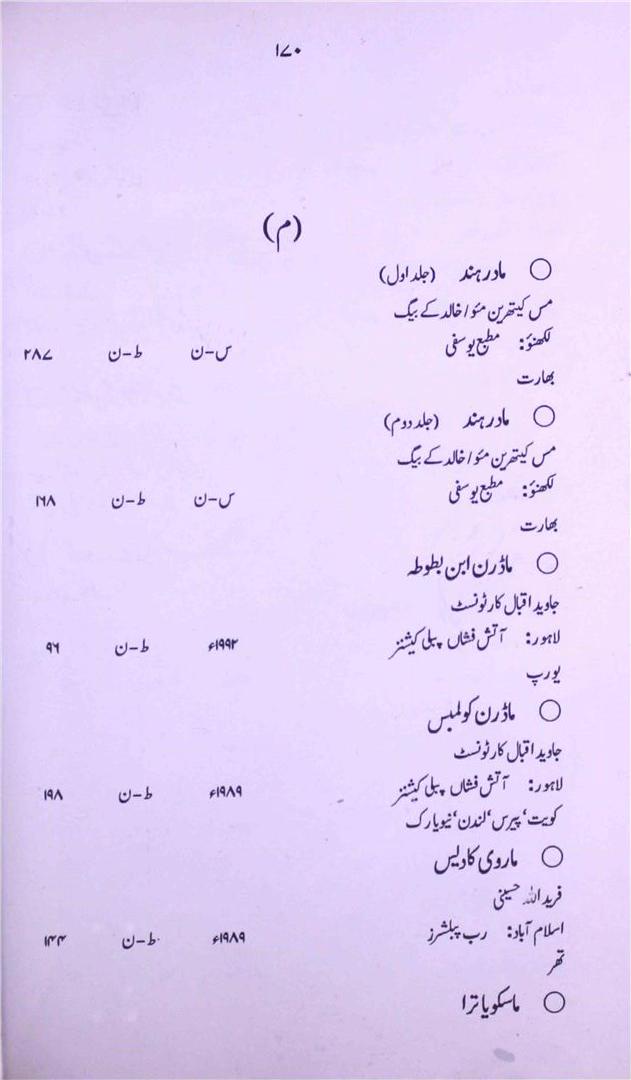 ۱۷۰
(م)
○ مادر ہند (جلد اول)
مس کیتھرین مئو / خالد کے بیگ
لکھنؤ: مطبع یوسفی س-ن ط-ن ۲۸۷
بھارت
○ مادر ہند (جلد دوم)
مس کیتھرین مئو / خالد کے بیگ
لکھنؤ: مطبع یوسفی س-ن ط-ن ۱۶۸
بھارت
○ ماڈرن ابن بطوطہ
جاوید اقبال کارٹونسٹ
لاہور: آتش فشاں پبلی کیشنز ۱۹۹۲ء ط-ن ۹۶
یورپ
○ ماڈرن کولمبس
جاوید اقبال کارٹونسٹ
لاہور: آتش فشاں پبلی کیشنز ۱۹۸۹ء ط-ن ۱۹۸
کویت‘ پیرس‘ لندن‘ نیویارک
○ ماروی کا دیس
فرید اللہ حسینی
اسلام آباد: رب پبلشرز ۱۹۸۹ء ط-ن ۱۴۴
تھر
○ ماسکو یاترا